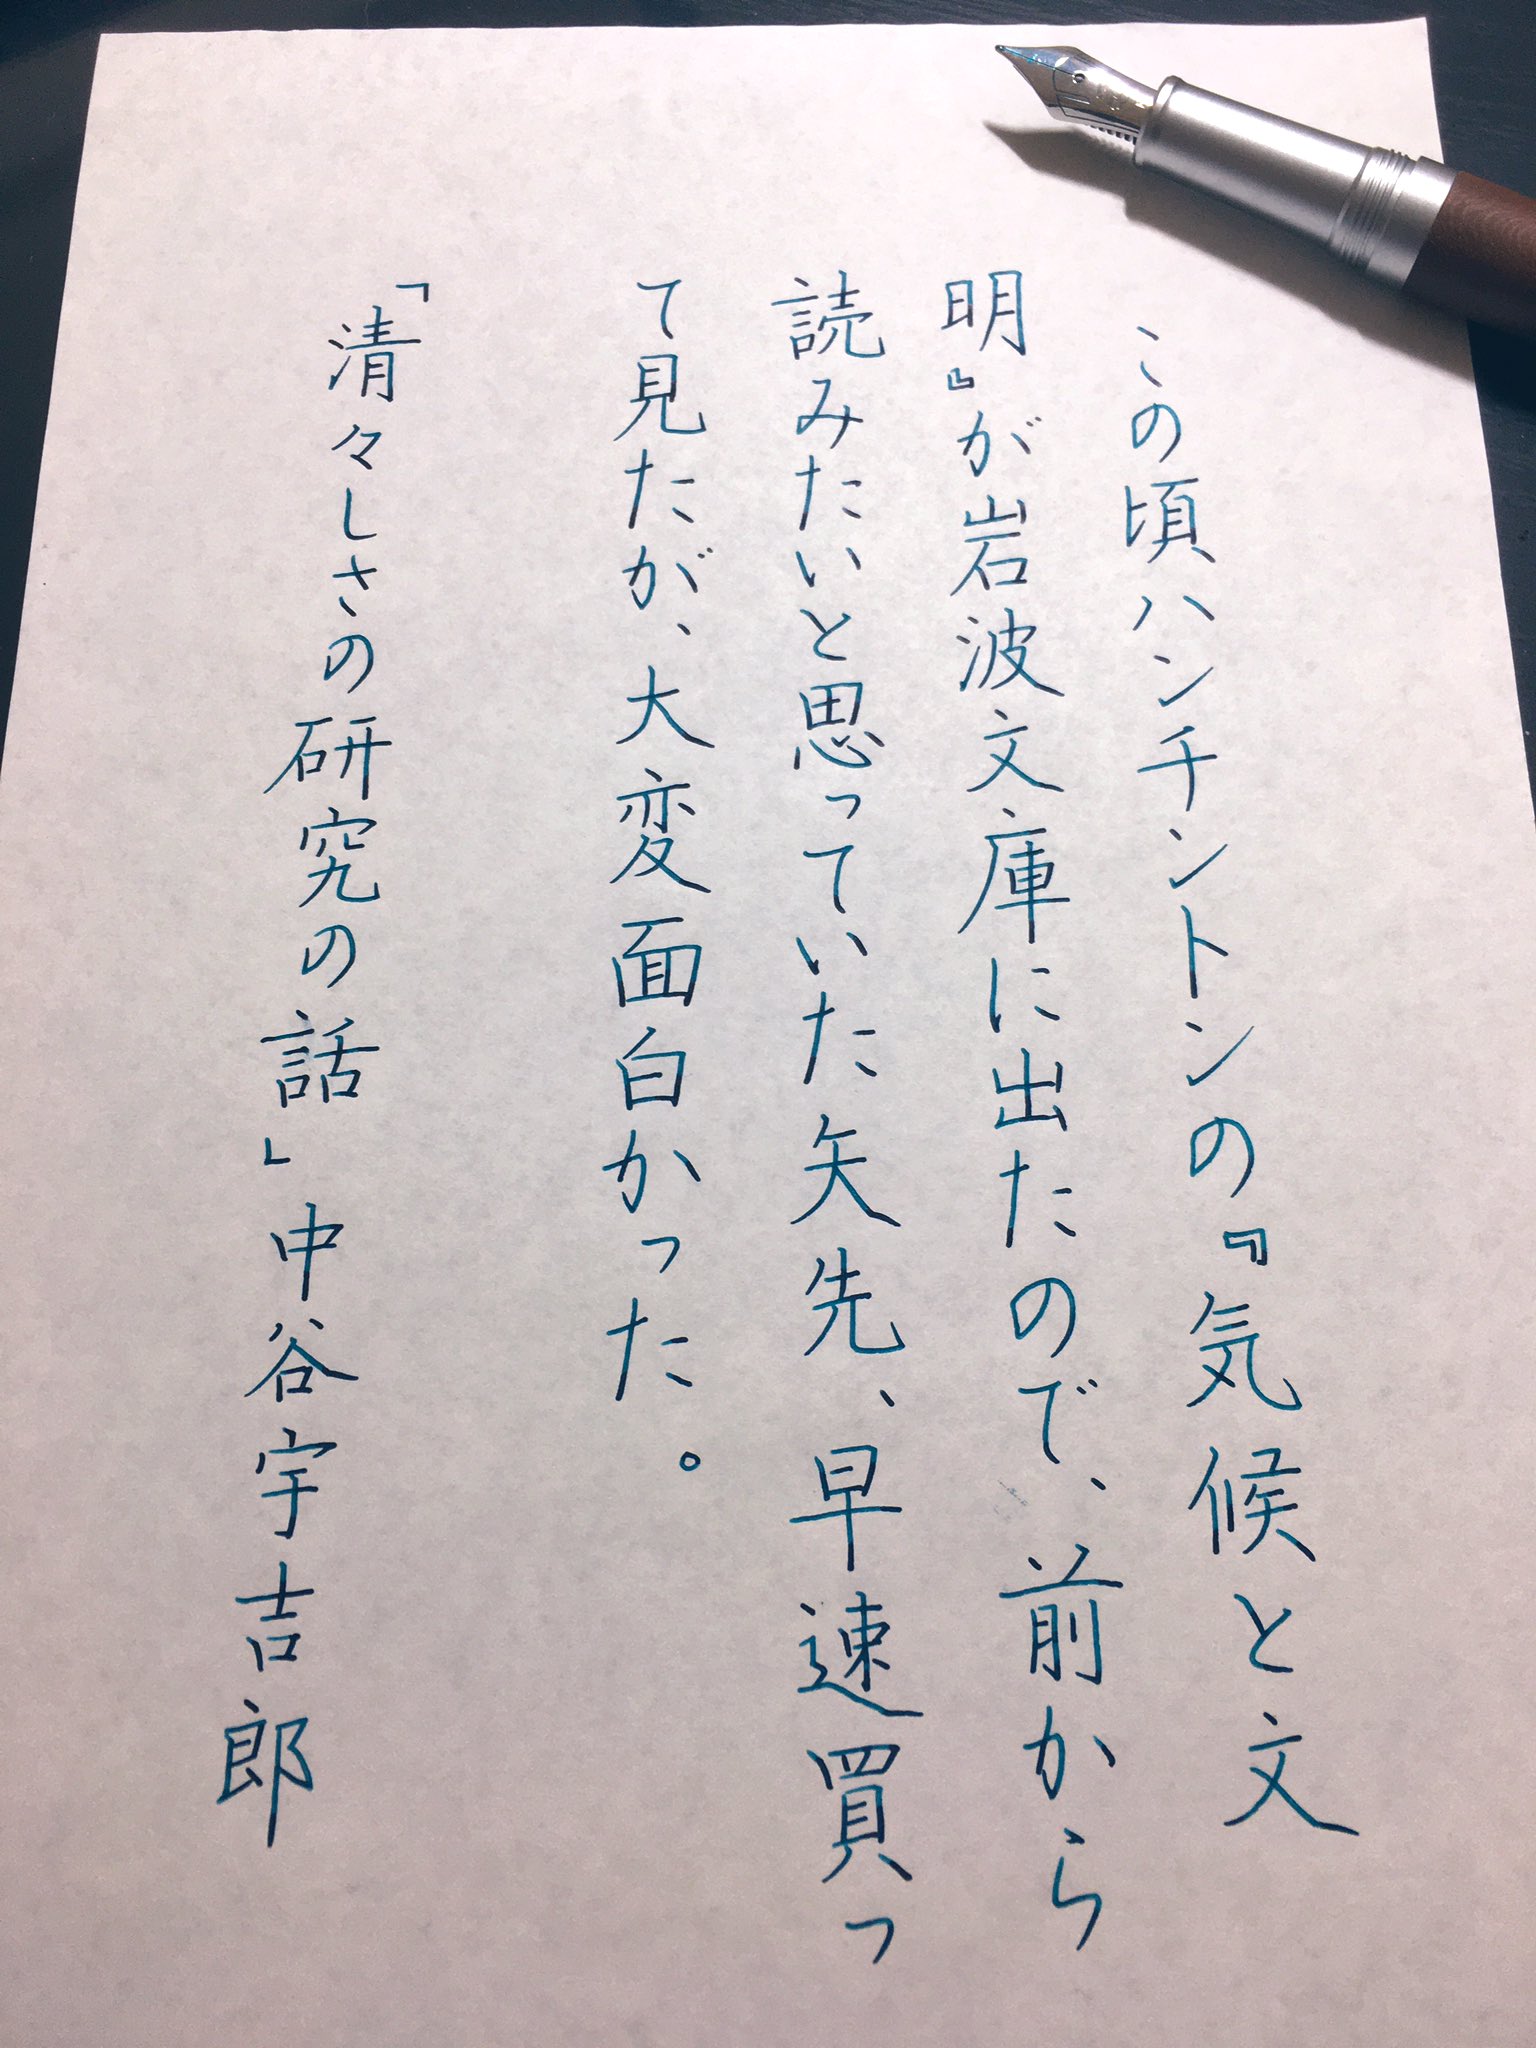 この頃ハンチントンの『気候と文
明』が岩波文庫に出たので、前から
読みたいと思っていた矢先、早速買っ
て見たが、大変面白かった。
「清々しさの研究の話」中谷宇吉郎